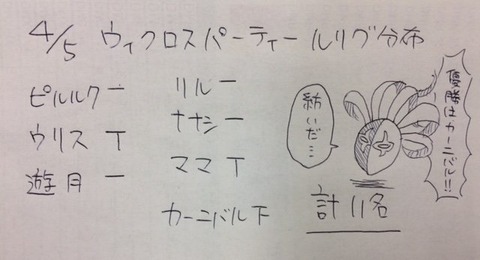 4/5 ウィクロスパーティー ルリグ分布
ピルルク 一
ウリス T
遊月 一
リル 一
ナナシ 一
ママ T
カーニバル 下
紡いだ…
優勝はカーニバル!!
計11名